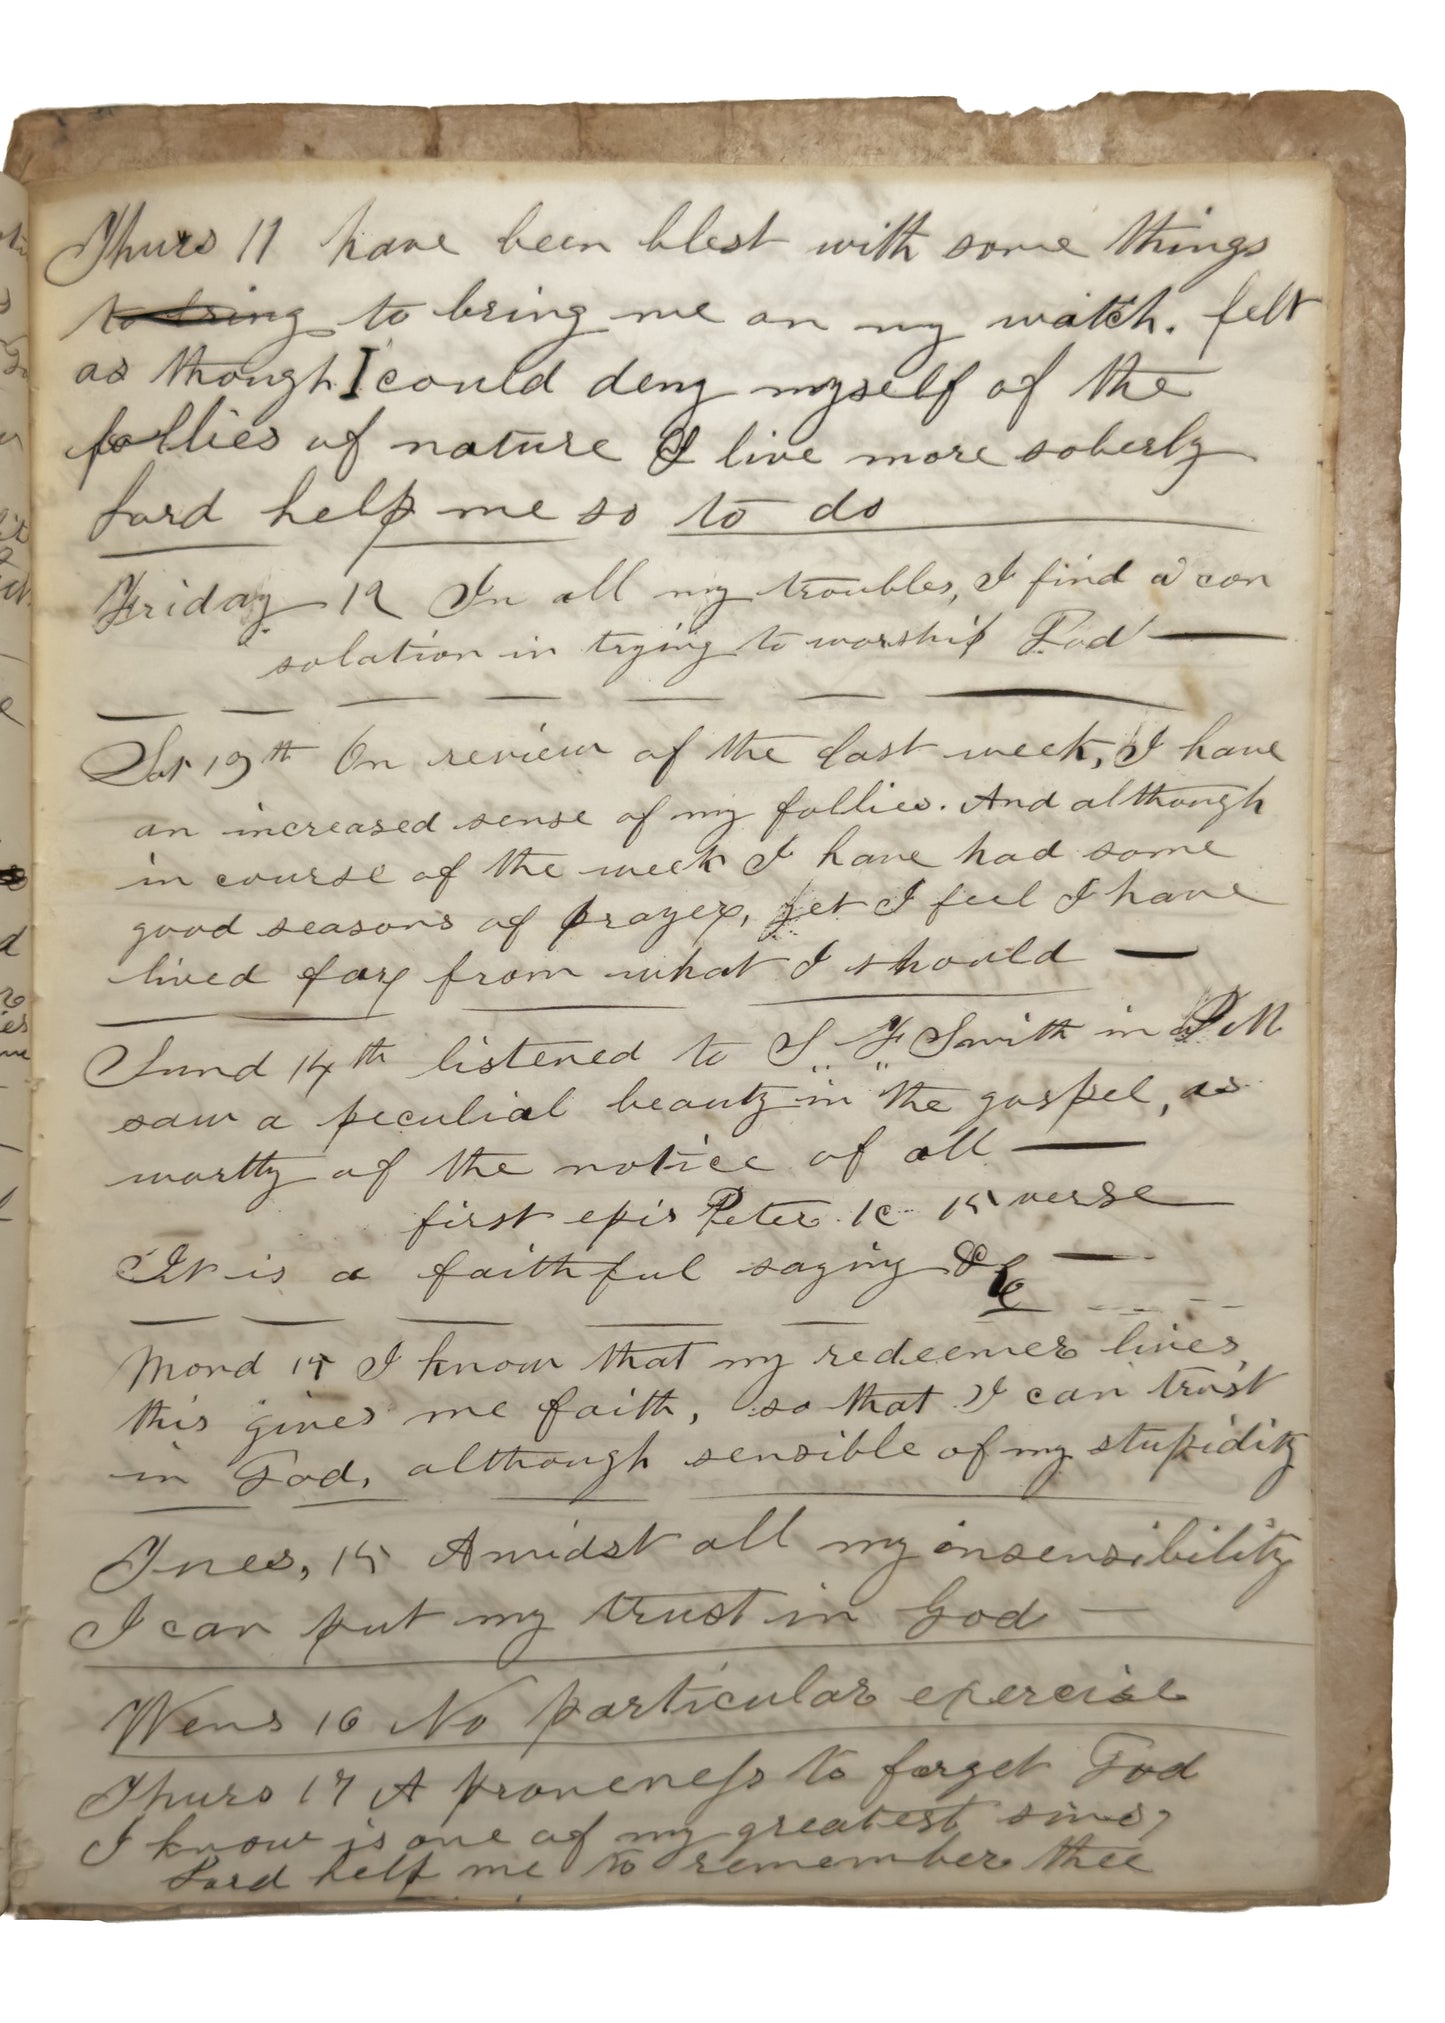 Thurs 11 have been blest with some things
to bring to bring me on my watch. felt
as though I could deny myself of the
follies of nature & live more soberly
Lord help me so to do
Friday 12 In all my troubles, I find a con
solation in trying to worship God
Sat 13th On review of the last week, I have
an increased sense of my follies. And although
in course of the week I have had some
good seasons of prayer, yet I feel I have
lived far from what I should
Sund 14th listened to S. F. Smith in P M
saw a peculial beauty in the gospel, as
wortty of the notice of all
first epis Peter 1c 15 verse
It is a faithful saying &c
Mond 15 I know that my redeemer lives
this gives me faith, so that I can trust
in God, although sensible of my stupidity
Tues, 15 Amidst all my insensibility
I can put my trust in God
Wens 16 No particular exercise
Thurs 17 A proneness to forget God
I know is one of my greatest sins,
Lord help me to remember thee